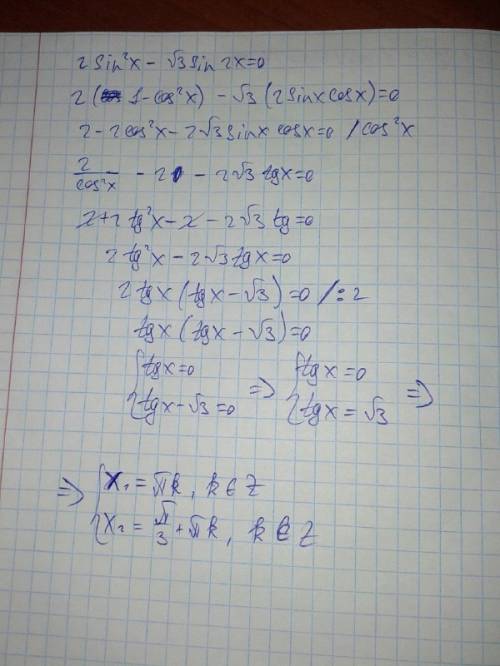 2 sin²x − √3 sin 2x=0
2 (1−cos²x) − √3 (2 sinx cosx)=0
2 − 2cos²x − 2√3 sinx cosx=0 /cos²x
2/cos²x − 2 − 2√3 tgx=0
2+2tg²x − 2 − 2√3 tg=0
2tg²x − 2√3 tgx=0
2tgx (tgx − √3)=0 /:2
tgx (tgx − √3)=0
{tgx=0 => {tgx=0 =>
{tgx − √3=0 {tgx = √3
=> {x₁ = πk, k∈Z
{x₂ = π/3 + πk, k∈Z